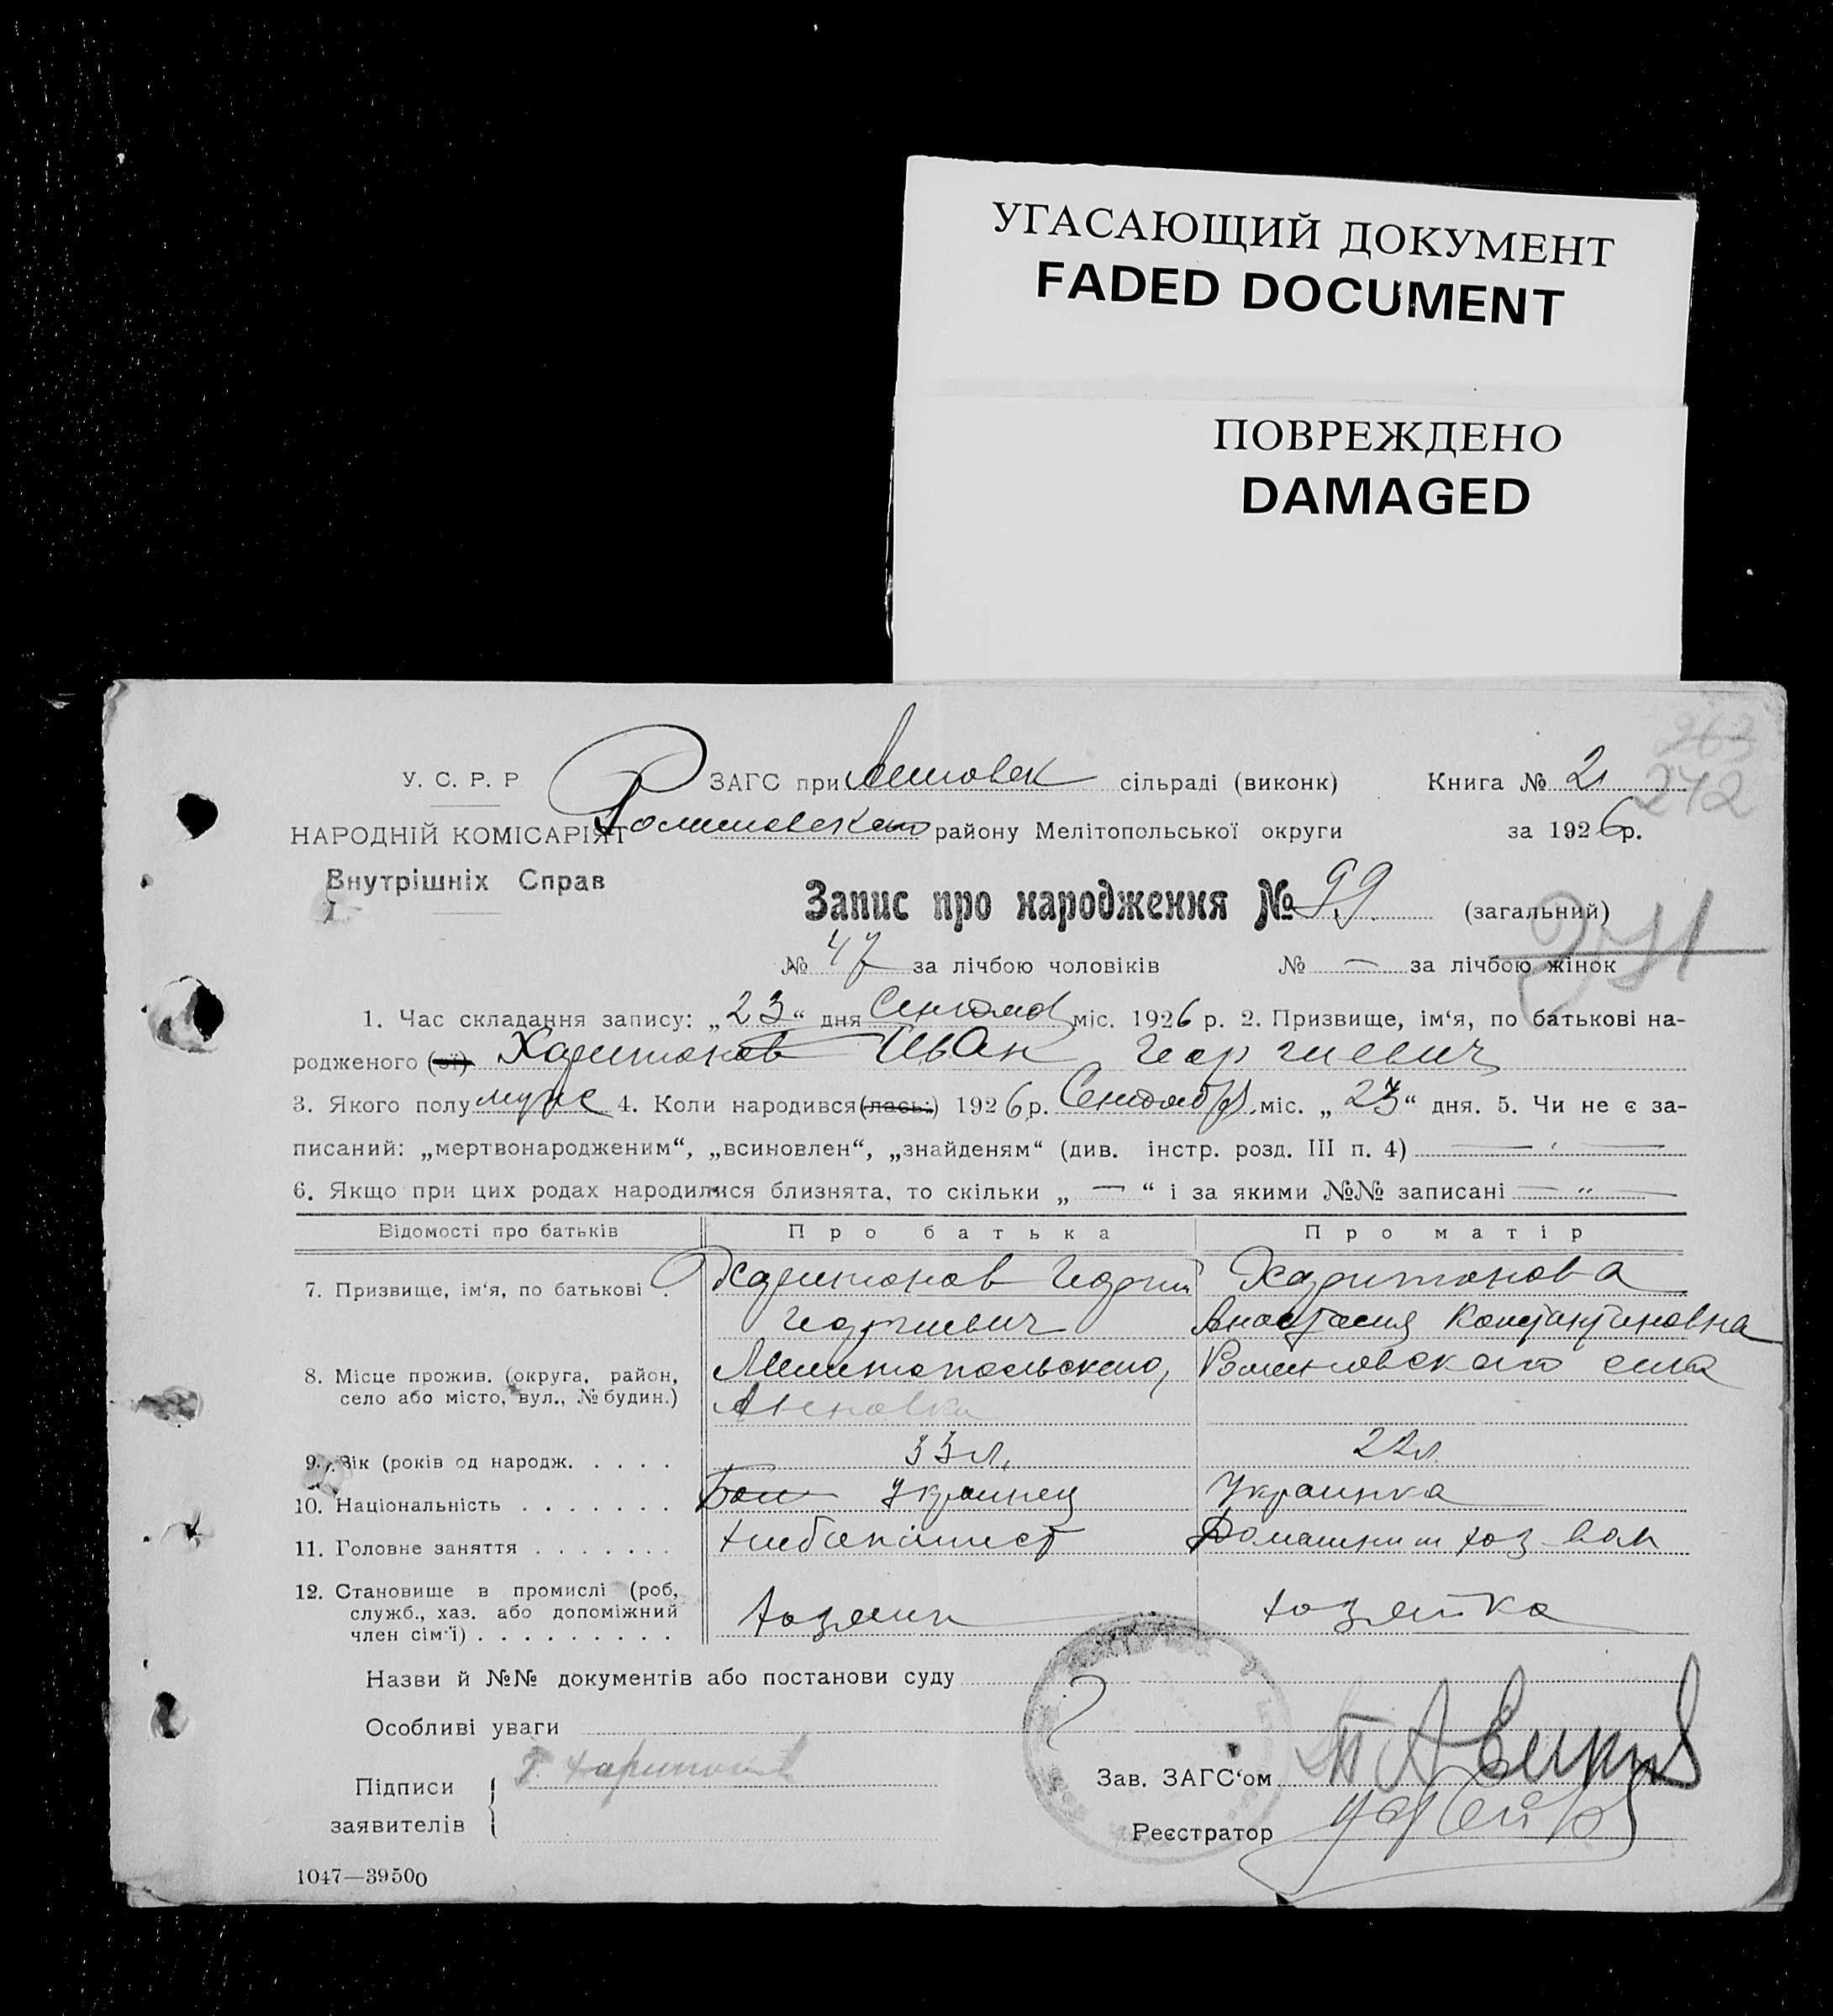 УГАСАЮЩИЙ ДОКУМЕНТ
FADED DOCUMENT
ПОВРЕЖДЕНО
DAMAGED
263
272
У. С. Р. Р ЗАГС при сільраді (виконк) Книга № 2
НАРОДНІЙ КОМІСАРІЯТ району Мелітопольської округи за 1926 р.
Внутрішніх Справ
Запис про народження № 99 (загальний)
271
№ 47 за лічбою чоловіків № — за лічбою жінок
1. Час складання запису: „23“ дня міс. 1926 р. 2. Призвище, ім‘я, по батькові на-
родженого (ої) Харитонов Иван Георгиевич
3. Якого полу муж 4. Коли народився (лась:) 1926 р. Сентября міс. „23“ дня. 5. Чи не є за-
писаний: „мертвонародженим“, „всиновлен“, „знайденям“ (див. інстр. розд. III п. 4) — „ —
6. Якщо при цих родах народилися близнята, то скільки „ — “ і за якими №№ записані — „ —
Відомості про батьків Про батька Про матір
7. Призвище, ім‘я, по батькові . Харитонов Георгий Харитонова
Георгиевич Анастасия Константиновна
8. Місце прожив. (округа, район, Мелитопольского, села
село або місто, вул., № будин.)
9. Вік (років од народж. . . . . 33 л. 22 л.
10. Національність . . . . . . . Украинец Украинка
11. Головне заняття . . . . . . . Хлебопашест Домашним хоз-вом
12. Становище в промислі (роб, Хозяин хозяйка
служб., хаз. або допоміжний
член сім‘ї) . . . . . . . . .
Назви й №№ документів або постанови суду
Особливі уваги
Підписи Г. Харитонов
заявителів
Зав. ЗАГС‘ом
Реєстратор
1047—39500